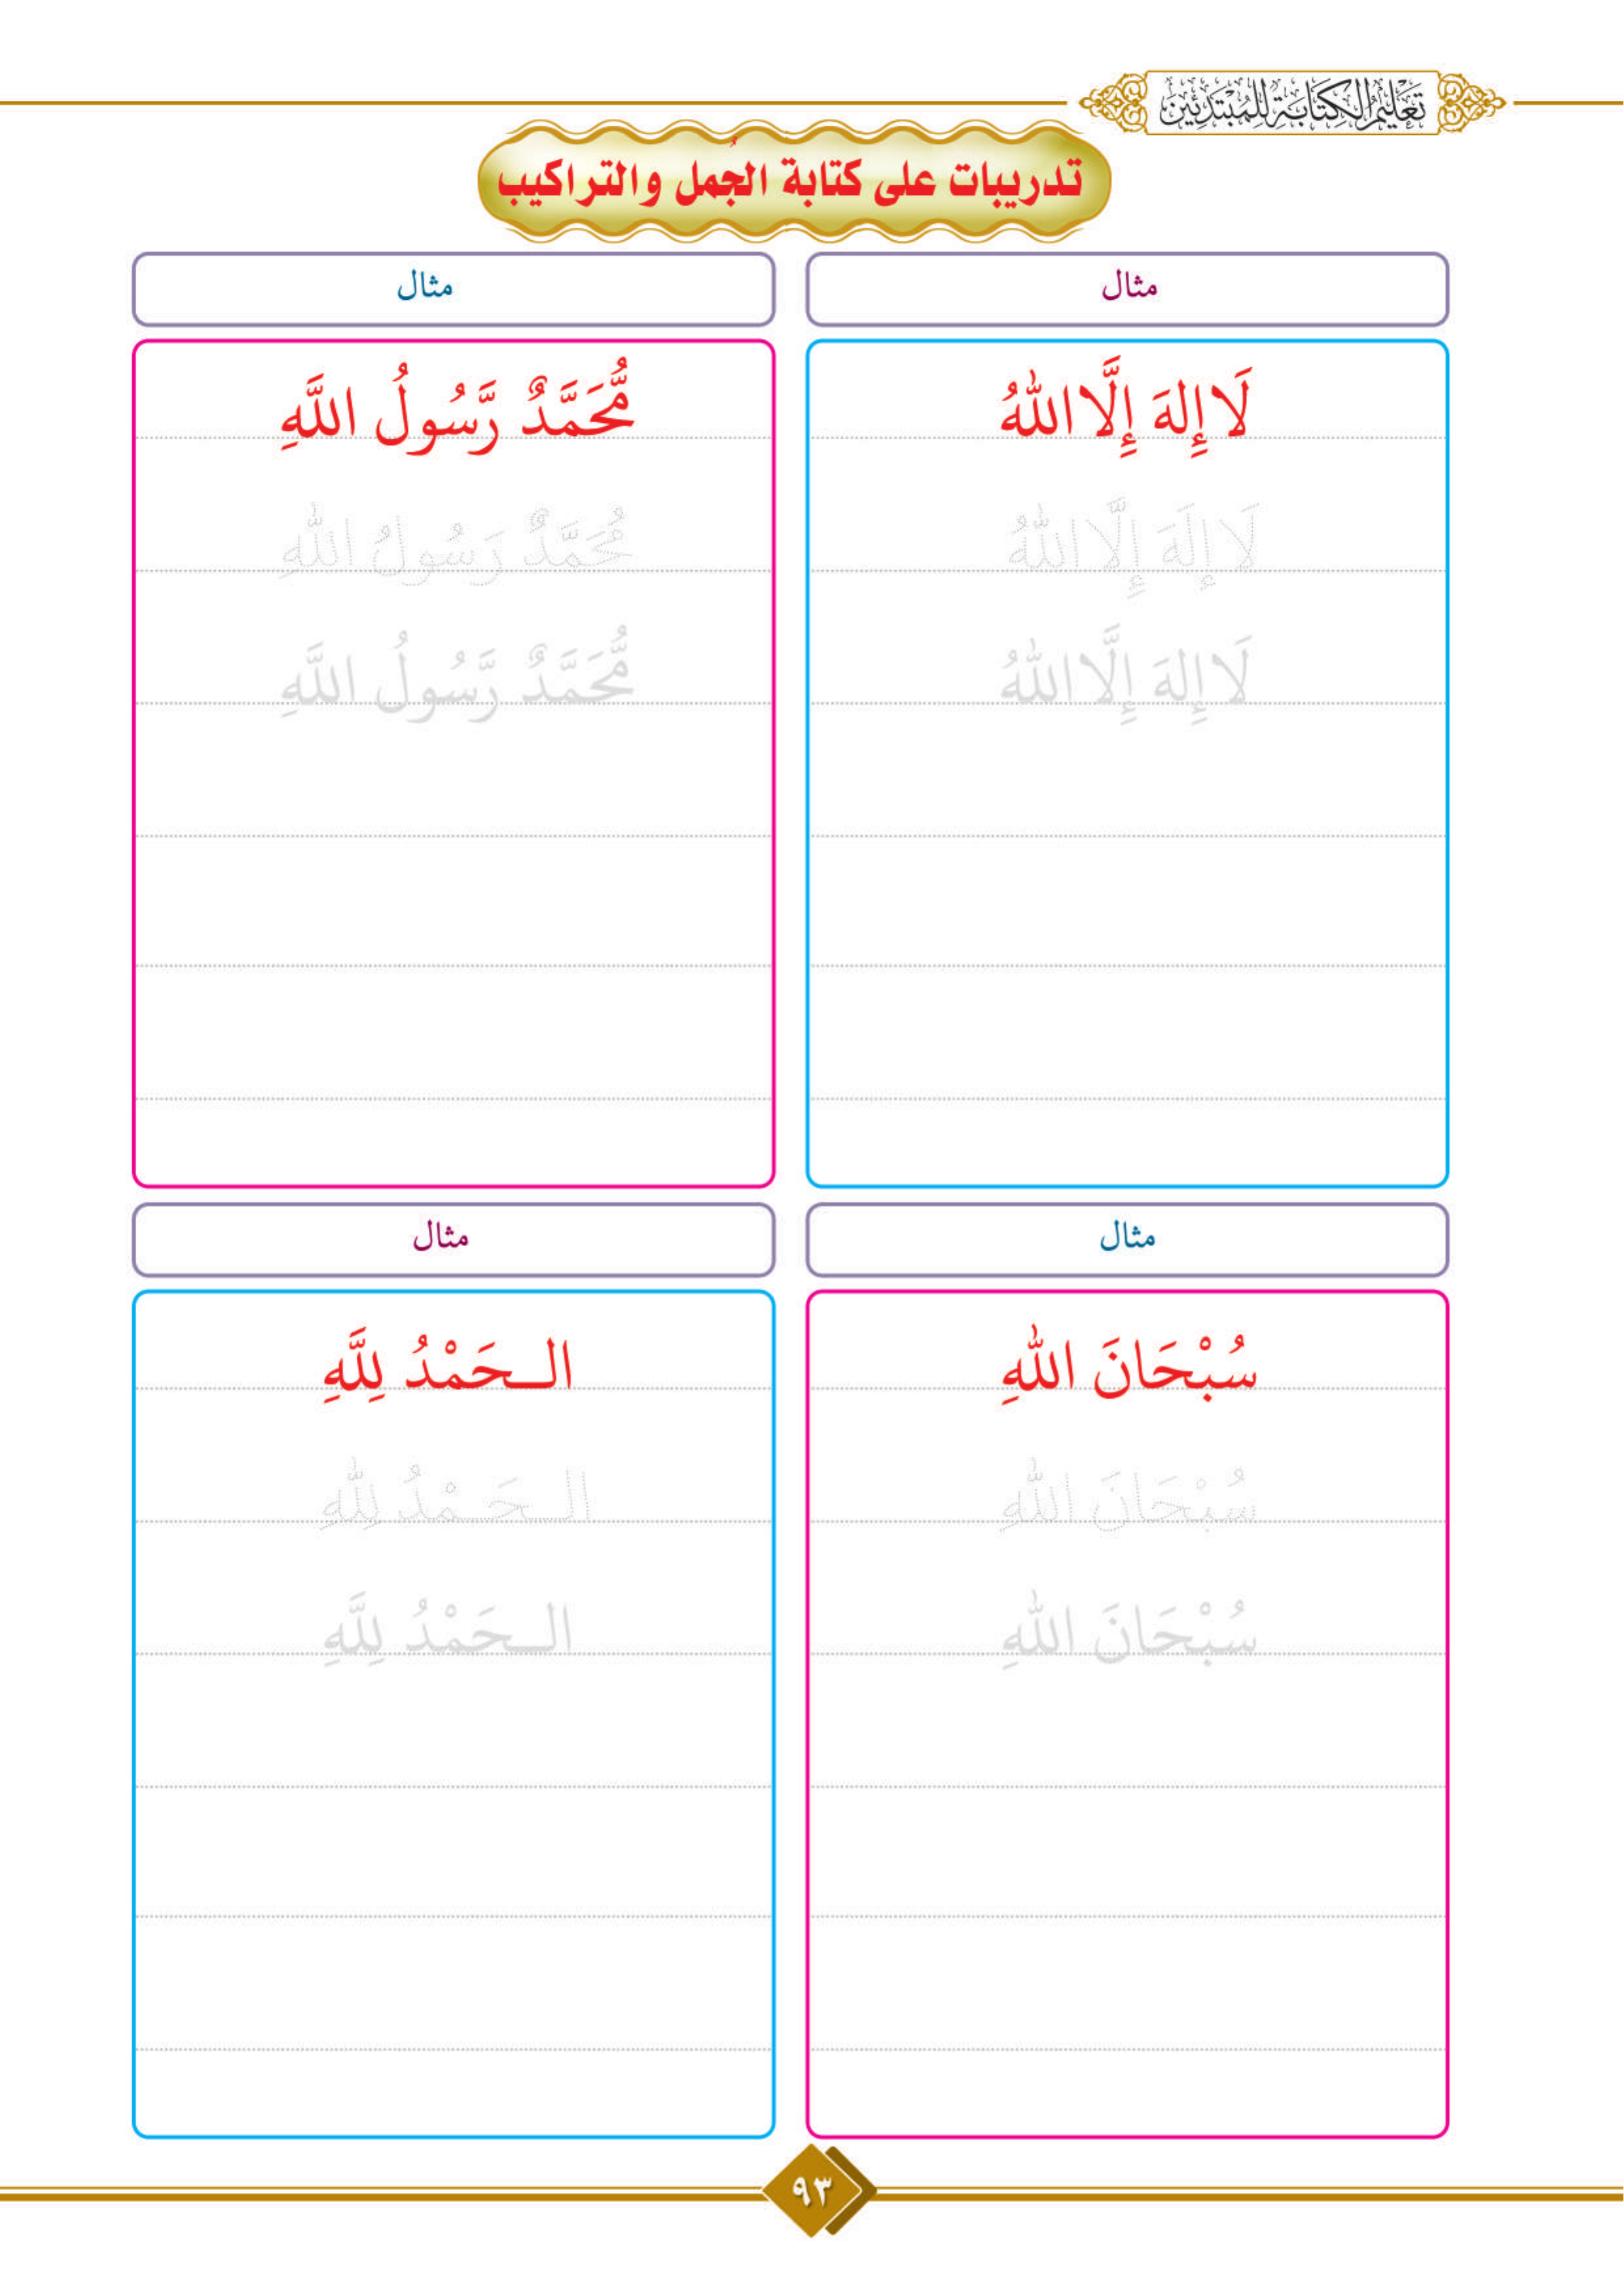 تَعْلِيمُ الْكِتَابَةِ لِلْمُبْتَدِئِينَ
تدريبات على كتابة الجُمل والتراكيب
مثال
لَا إِلٰهَ إِلَّا اللهُ
لَا إِلَهَ إِلَّا اللهُ
لَا إِلٰهَ إِلَّا اللهُ
مثال
مُّحَمَّدٌ رَّسُولُ اللَّهِ
مُحَمَّدٌ رَسُولُ اللهِ
مُّحَمَّدٌ رَّسُولُ اللَّهِ
مثال
سُبْحَانَ اللهِ
سُبْحَانَ اللهِ
سُبْحَانَ اللهِ
مثال
الـحَمْدُ لِلَّهِ
الـحَـمْدُ لِلهِ
الـحَمْدُ لِلَّهِ
٩٣